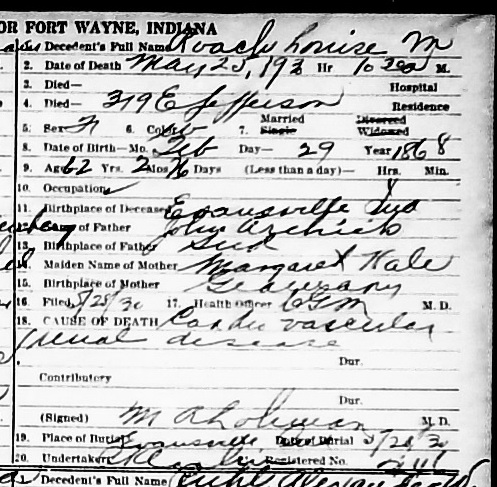 OR FORT WAYNE, INDIANA
Decedent's Full Name Roach Louise M
2. Date of Death May 25, 193 Hr 10 30a M.
3. Died— Hospital
4. Died— 319 E Jefferson Residence
5. Sex F 6. Color w 7. Married Single Divorced Widowed
8. Date of Birth—Mo. Feb Day— 29 Year 1868
9. Age 62 Yrs. 2 Mos 26 Days (Less than a day)— Hrs. Min.
10. Occupation
11. Birthplace of Deceased Evansville Ind
of Father John
13. Birthplace of Father Ind
14. Maiden Name of Mother Margaret Hale
15. Birthplace of Mother Germany
16. Filed 5/28/30 17. Health Officer M. D.
18. CAUSE OF DEATH Cardio vascular
renal disease
Dur.
Contributory
Dur.
(Signed) M. D.
19. Place of Burial Evansville Date of Burial 5/28/3
20. Undertaker Registered No.
Decedent's Full Name